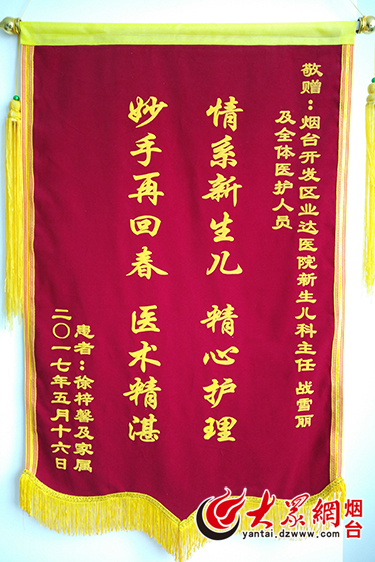 敬赠：烟台开发区业达医院新生儿科主任 战雪丽
及全体医护人员
情系新生儿 精心护理
妙手再回春 医术精湛
患者：徐梓馨及家属
二〇一七年五月十六日
大眾網 烟台
yantai.dzwww.com